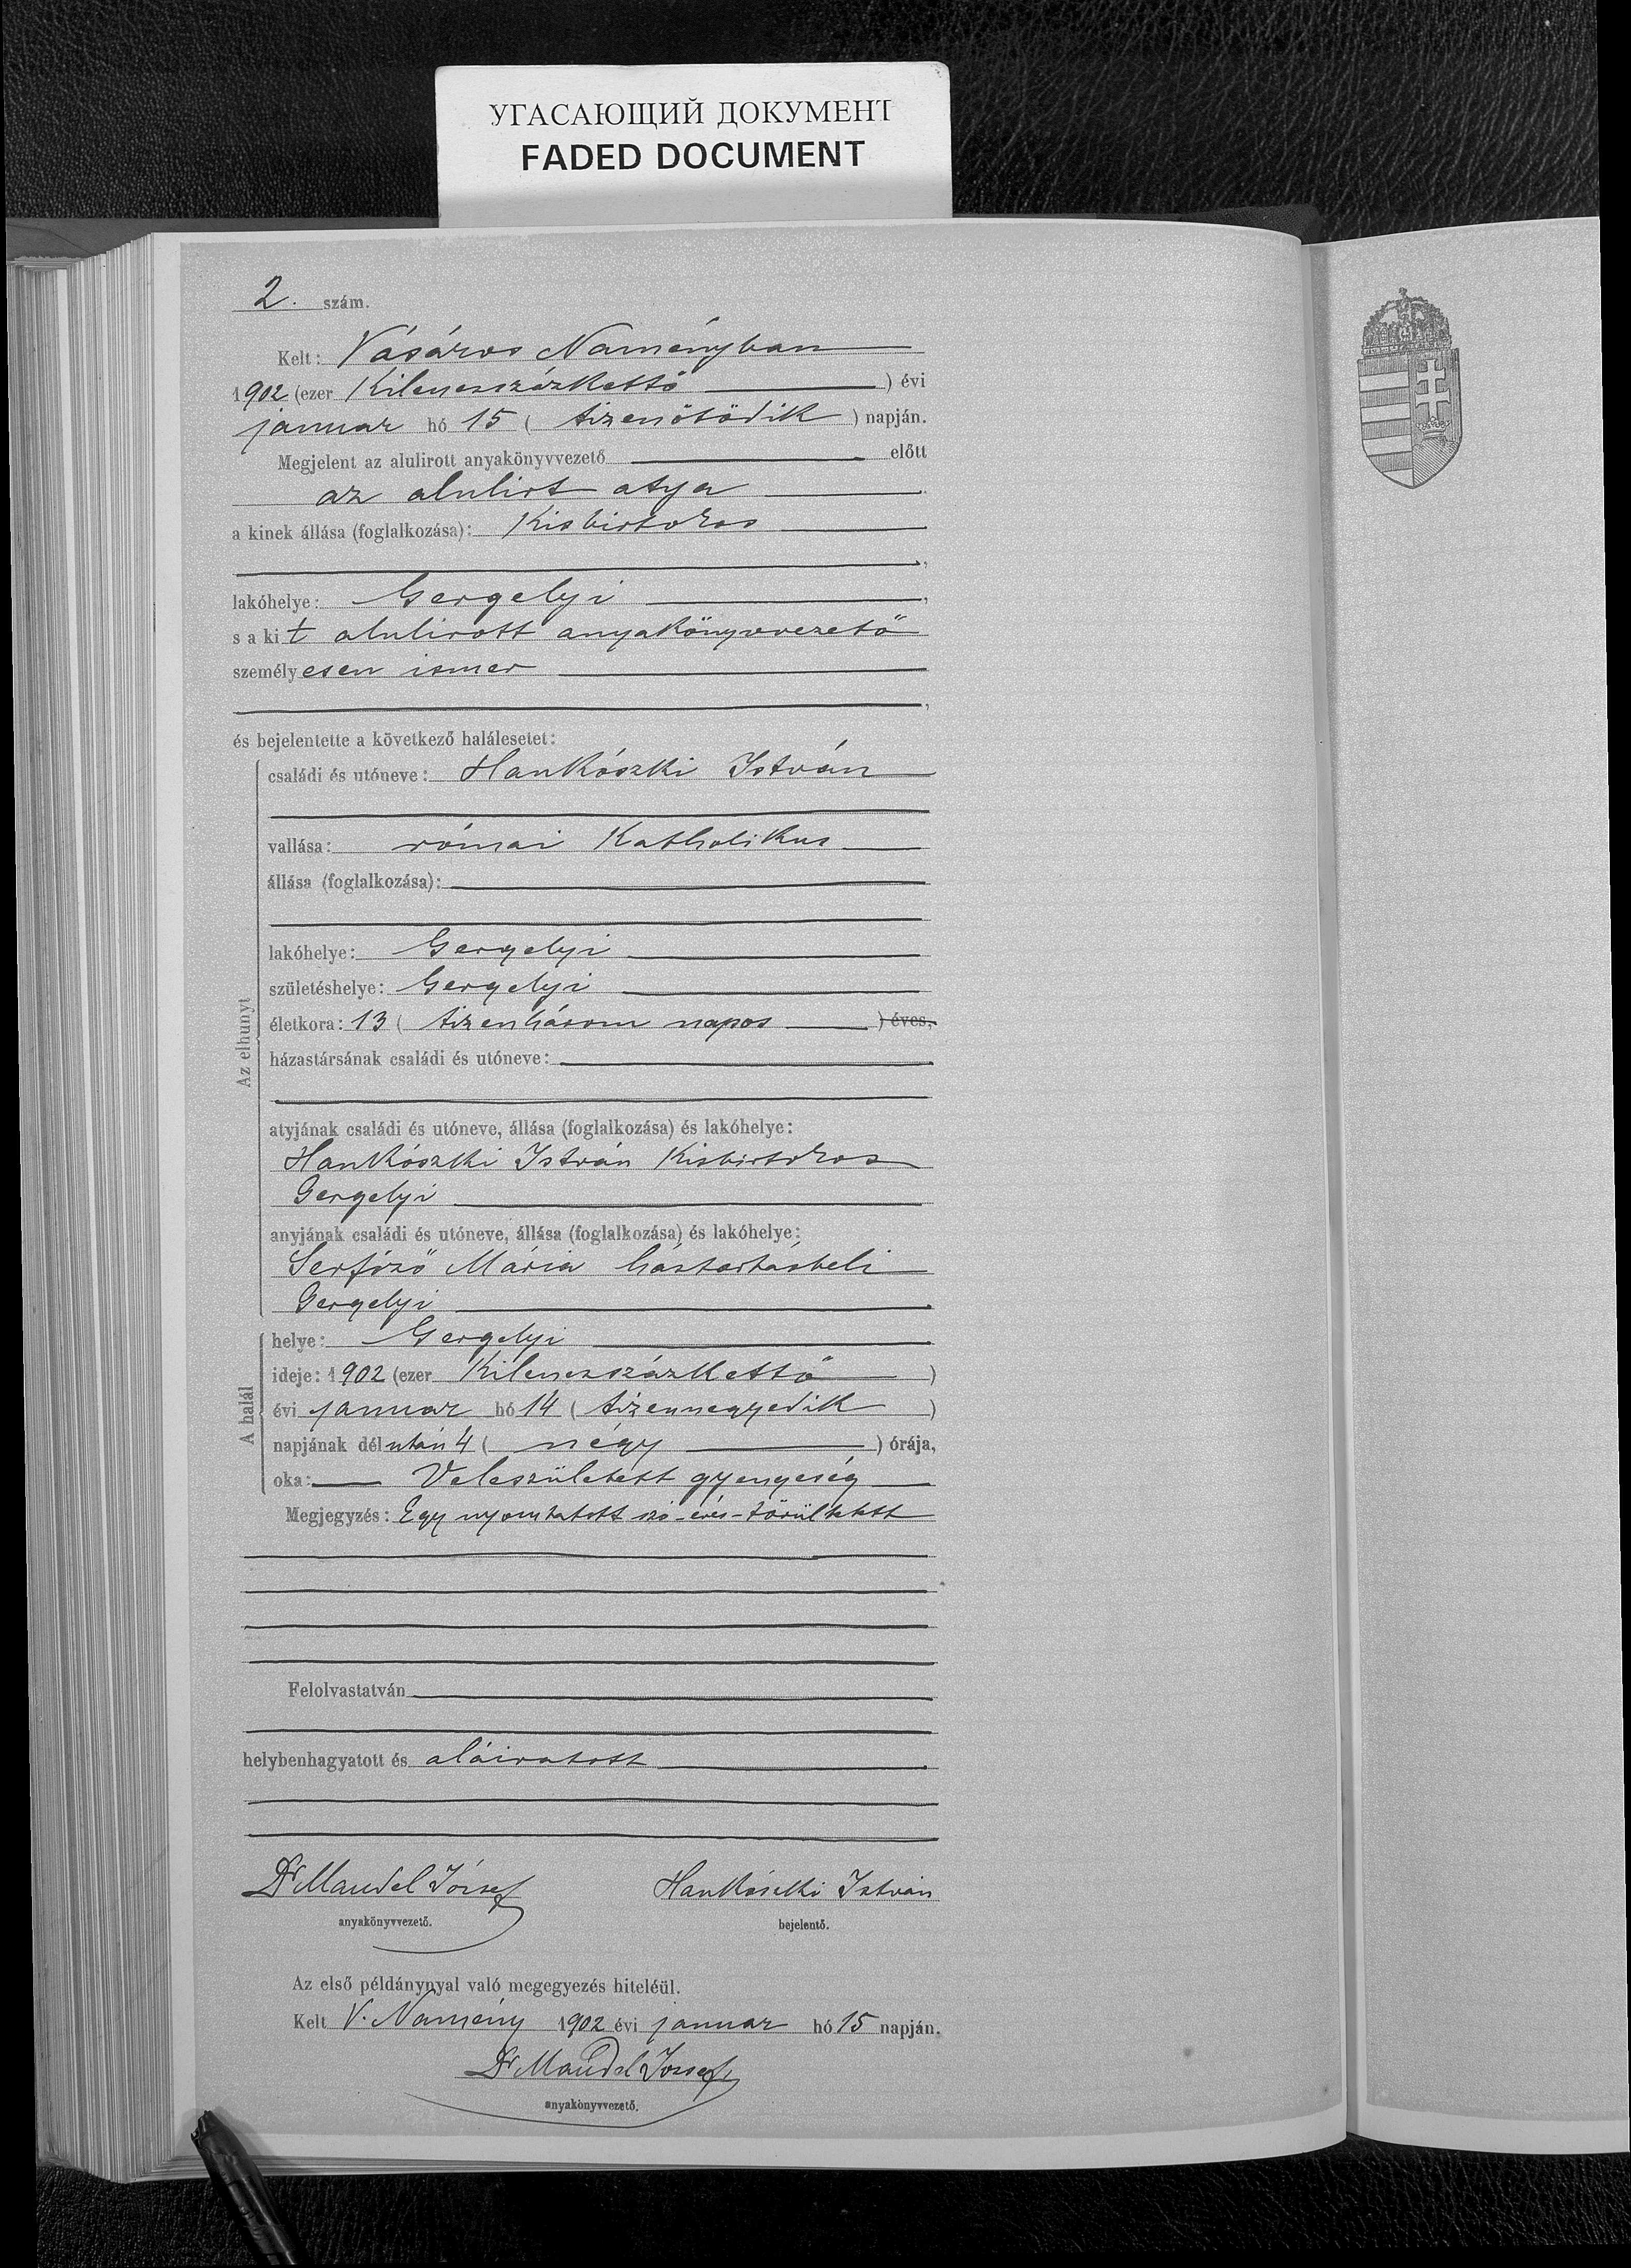 УГАСАЮЩИЙ ДОКУМЕНТ
FADED DOCUMENT
2. szám.
Kelt: Vásáros Naményban
1902 (ezer Kilenczszázkettő ) évi
januar hó 15 ( tizenötödik ) napján.
Megjelent az alulirott anyakönyvvezető előtt
az alulirt atya
a kinek állása (foglalkozása): Kisbirtokos
lakóhelye: Gergelyi
s a kit alulirott anyakönyvvezető
személyesen ismer
és bejelentette a következő halálesetet:
Az elhunyt
családi és utóneve: Hankószki István
vallása: római Katholikus
állása (foglalkozása):
lakóhelye: Gergelyi
születéshelye: Gergelyi
életkora: 13 ( tizenhárom napos ) éves,
házastársának családi és utóneve:
atyjának családi és utóneve, állása (foglalkozása) és lakóhelye:
Hankószki István Kisbirtokos
Gergelyi
anyjának családi és utóneve, állása (foglalkozása) és lakóhelye:
Serfőző Mária háztartásbeli
Gergelyi
A halál
helye: Gergelyi
ideje: 1902 (ezer Kilenczszázkettő )
évi januar hó 14 ( tizennegyedik )
napjának délután 4 ( négy ) órája,
oka: Veleszületett gyengeség
Megjegyzés: Egy nyomtatott szó - éves - töröltetett
Felolvastatván
helybenhagyatott és aláiratott
Dr Mandel József Hankószki István
anyakönyvvezető. bejelentő.
Az első példánynyal való megegyezés hiteléül.
Kelt V. Namény 1902 évi januar hó 15 napján.
Dr Mandel József
anyakönyvvezető.